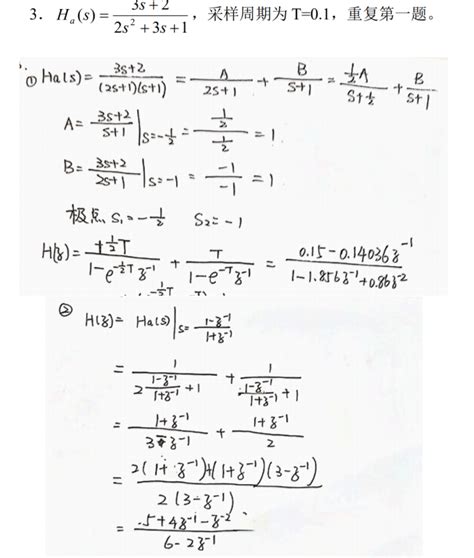 3. H_a(s) = (3s+2)/(2s²+3s+1), 采样周期为 T=0.1, 重复第一题。
① Ha(s) = (3s+2)/((2s+1)(s+1)) = A/(2s+1) + B/(s+1) = (½A)/(s+½) + B/(s+1)
A = (3s+2)/(s+1) |s=-½ = (½)/(½) = 1
B = (3s+2)/(2s+1) |s=-1 = (-1)/(-1) = 1
极点 S₁=-½ S₂=-1
H(z) = (½T)/(1-e^(-½T) z⁻¹) + T/(1-e^(-T) z⁻¹) = (0.15-0.14036z⁻¹)/(1-1.856z⁻¹+0.86z⁻²)
② H(z) = Ha(s) |s=(1-z⁻¹)/(1+z⁻¹)
= 1/(2 (1-z⁻¹)/(1+z⁻¹) +1) + 1/((1-z⁻¹)/(1+z⁻¹) +1)
= (1+z⁻¹)/(3-z⁻¹) + (1+z⁻¹)/2
= (2(1+z⁻¹)+(1+z⁻¹)(3-z⁻¹))/(2(3-z⁻¹))
= (5+4z⁻¹-z⁻²)/(6-2z⁻¹)